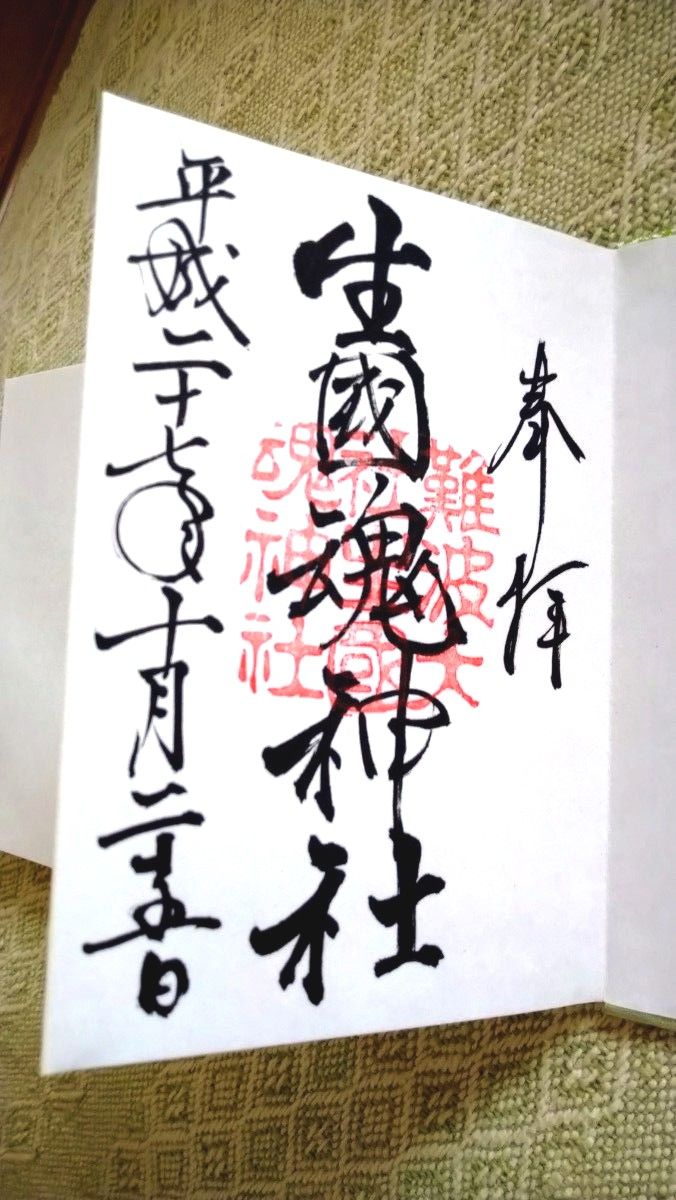 奉拝
生國魂神社
難波大
社生國
魂神社
平成二十七年十月二十五日